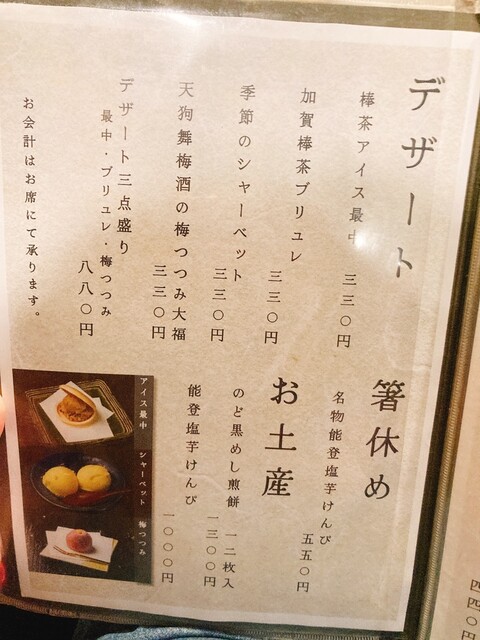 デザート
棒茶アイス最中 三三〇円
加賀棒茶ブリュレ 三三〇円
季節のシャーベット 三三〇円
天狗舞梅酒の梅つつみ大福 三三〇円
デザート三点盛り
最中・ブリュレ・梅つつみ 八八〇円
お会計はお席にて承ります。
箸休め
名物能登塩芋けんぴ 五五〇円
お土産
のど黒めし煎餅 一二枚入 一三〇〇円
能登塩芋けんぴ 一〇〇〇円
アイス最中
シャーベット
梅つつみ
四四〇円